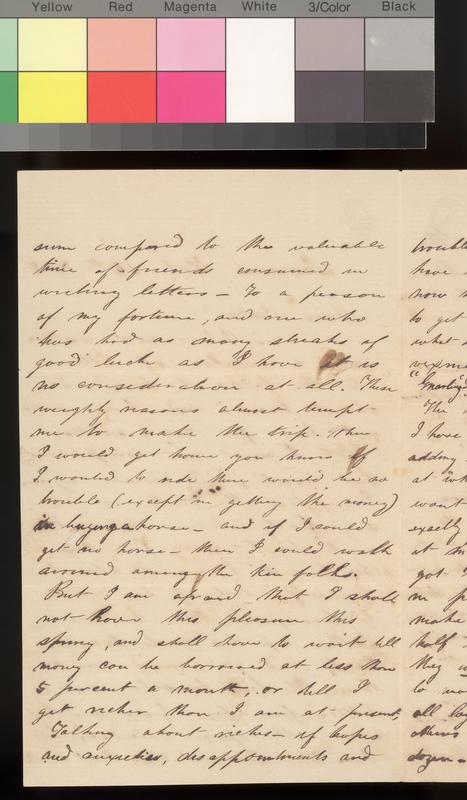 Yellow Red Magenta White 3/Color Black
sum compared to the valuable
time of friends consumed in
writing letters — To a person
of my fortune, and one who
has had as many streaks of
good luck as I have it is
no consideration at all. These
weighty reasons almost tempt
me to make the trip. then
I would get home you know if
I wanted to ride there would be no
trouble (except in getting the money)
in buying a horse — and if I could
get no horse — then I could walk
around among the kin folks.
But I am afraid that I shall
not have this pleasure this
spring, and shall have to wait till
money can be borrowed at less than
5 percent a month, or till I
get richer than I am at present,
Talking about riches — if hopes
and anxieties, disappointments and
trouble
have
now
to get
what
"
The
I have
adding
at wh
want
exactly
at
got
in p
make
half
they
to
all
dozen —